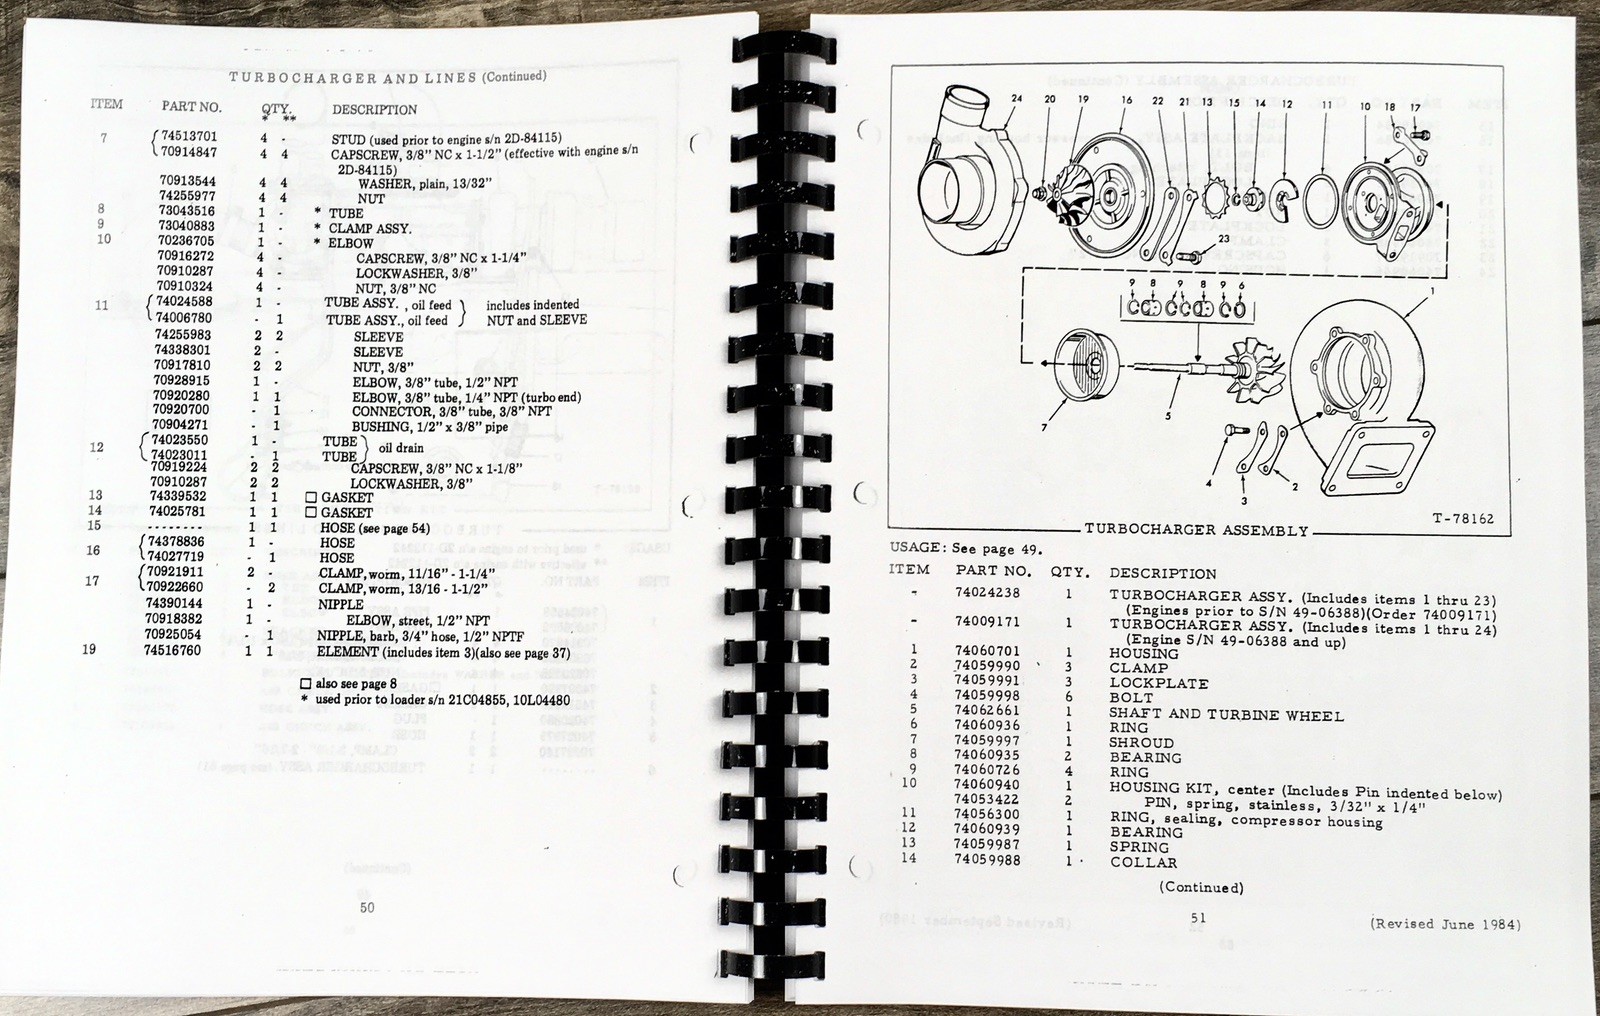 TURBOCHARGER AND LINES (Continued)
ITEM PART NO. QTY. DESCRIPTION
* **
7 74513701 4 - STUD (used prior to engine s/n 2D-84115)
70914847 4 4 CAPSCREW, 3/8" NC x 1-1/2" (effective with engine s/n
2D-84115)
70913544 4 4 WASHER, plain, 13/32"
74255977 4 4 NUT
8 73043516 1 - * TUBE
9 73040883 1 - * CLAMP ASSY.
10 70236705 1 - * ELBOW
70916272 4 - CAPSCREW, 3/8" NC x 1-1/4"
70910287 4 - LOCKWASHER, 3/8"
70910324 4 - NUT, 3/8" NC
11 74024588 1 - TUBE ASSY. , oil feed includes indented
74006780 - 1 TUBE ASSY., oil feed NUT and SLEEVE
74255983 2 2 SLEEVE
74338301 2 - SLEEVE
70917810 2 2 NUT, 3/8"
70928915 1 - ELBOW, 3/8" tube, 1/2" NPT
70920280 1 1 ELBOW, 3/8" tube, 1/4" NPT (turbo end)
70920700 - 1 CONNECTOR, 3/8" tube, 3/8" NPT
70904271 - 1 BUSHING, 1/2" x 3/8" pipe
12 74023550 1 - TUBE oil drain
74023011 - 1 TUBE
70919224 2 2 CAPSCREW, 3/8" NC x 1-1/8"
70910287 2 2 LOCKWASHER, 3/8"
13 74339532 1 1 □ GASKET
14 74025781 1 1 □ GASKET
15 -------- 1 1 HOSE (see page 54)
16 74378836 1 - HOSE
74027719 - 1 HOSE
17 70921911 2 - CLAMP, worm, 11/16" - 1-1/4"
70922660 - 2 CLAMP, worm, 13/16 - 1-1/2"
74390144 1 - NIPPLE
70918382 1 - ELBOW, street, 1/2" NPT
70925054 - 1 NIPPLE, barb, 3/4" hose, 1/2" NPTF
19 74516760 1 1 ELEMENT (includes item 3)(also see page 37)
□ also see page 8
* used prior to loader s/n 21C04855, 10L04480
50
24 20 19 16 22 21 13 15 14 12 11 10 18 17
23
9 8 9 8 9 6
1
7
5
4
3
2
T-78162
TURBOCHARGER ASSEMBLY
USAGE: See page 49.
ITEM PART NO. QTY. DESCRIPTION
- 74024238 1 TURBOCHARGER ASSY. (Includes items 1 thru 23)
(Engines prior to S/N 49-06388)(Order 74009171)
- 74009171 1 TURBOCHARGER ASSY. (Includes items 1 thru 24)
(Engine S/N 49-06388 and up)
1 74060701 1 HOUSING
2 74059990 3 CLAMP
3 74059991 3 LOCKPLATE
4 74059998 6 BOLT
5 74062661 1 SHAFT AND TURBINE WHEEL
6 74060936 1 RING
7 74059997 1 SHROUD
8 74060935 2 BEARING
9 74060726 4 RING
10 74060940 1 HOUSING KIT, center (Includes Pin indented below)
74053422 2 PIN, spring, stainless, 3/32" x 1/4"
11 74056300 1 RING, sealing, compressor housing
12 74060939 1 BEARING
13 74059987 1 SPRING
14 74059988 1 COLLAR
(Continued)
51
(Revised June 1984)